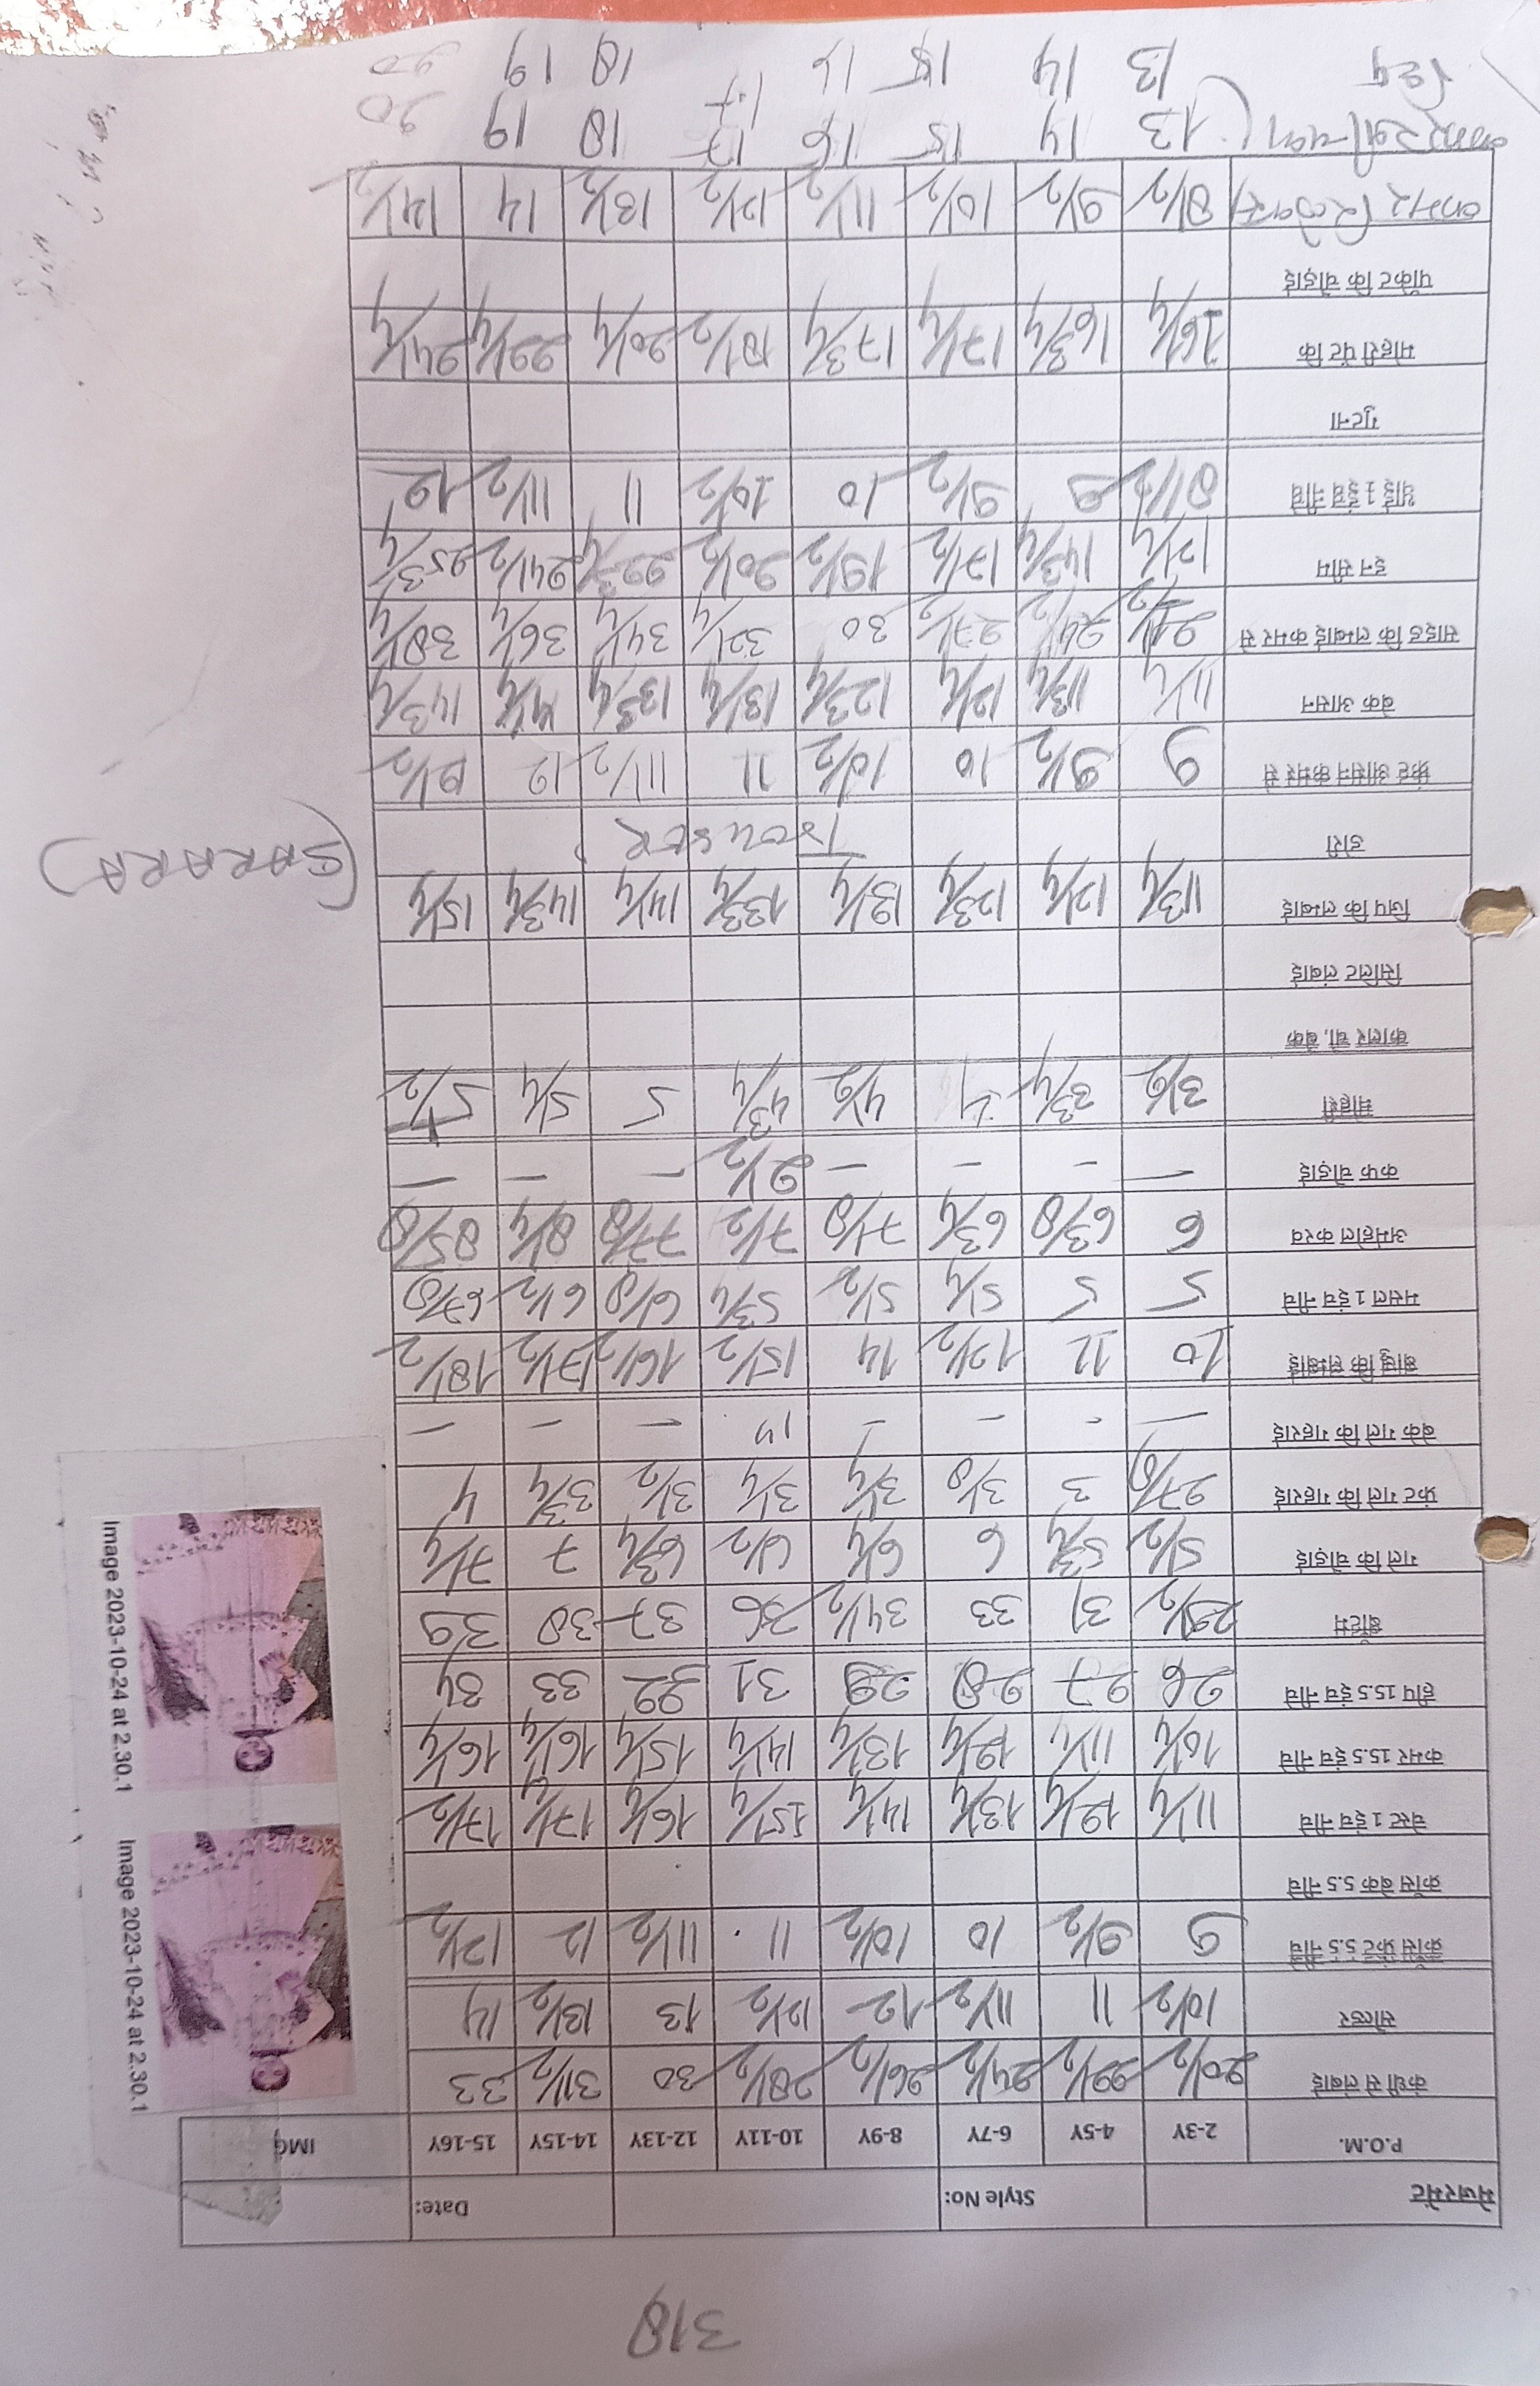 318
मेजरमेंट Style No: Date:
P.O.M. 2-3Y 4-5Y 6-7Y 8-9Y 10-11Y 12-13Y 14-15Y 15-16Y IMG
कंधी से लंबाई 20½ 22½ 24½ 26½ 28½ 30 31½ 33
सोल्डर 10½ 11 11½ 12 12½ 13 13½ 14
क्रॉस फ्रंट 5.5 नीचे 9 9½ 10 10½ 11 11½ 12 12½
क्रॉस बेक 5.5 नीचे
चेस्ट 1 इंच नीचे 11¼ 12¼ 13¼ 14¼ 15¼ 16¼ 17¼ 17½
कमर 15.5 इंच नीचे 10¼ 11¼ 12¼ 13¼ 14¼ 15¼ 16¼ 16¼
हीप 15.5 इंच नीचे 26 27 28 29 31 32 33 34
बॉटम 29½ 31 33 34½ 36 37 38 39
गले कि चौड़ाई 5½ 5¾ 6 6¼ 6½ 6¾ 7 7¼
फ्रंट गले कि गहराई 27/8 3 31/8 3¼ 3¼ 3½ 3¾ 4
बेक गले कि गहराई — - — — — — —
बाजु कि लम्बाई 10 11 12½ 14 15½ 16½ 17½ 18½
मसल 1 इंच नीचे 5 5 5¼ 5½ 5¾ 61/8 6½ 67/8
अमेहोल करव 6 63/8 6¾ 71/8 7½ 77/8 8¼ 85/8
कफ चौड़ाई — - — — 2½ — — —
मोहरी 3½ 3¾ 4 4½ 4¾ 5 5¼ 5½
कालर चौ. बेक
सिलिट लंबाई
जिप कि लम्बाई 11¾ 12¼ 12¾ 13¼ 13¾ 14¼ 14¾ 15¼
डोरी TrouseR (SARARA)
फ्रंट आसन कमर से 9 9½ 10 10½ 11 11½ 12 12½
बेक आसन 11¼ 11¾ 12¼ 12¾ 13¼ 13¾ 14¼ 14¾
साइड कि लम्बाई कमर से 21½ 24½ 27½ 30 32¼ 34¼ 36¼ 38¼
इन सीम 12¼ 14¾ 17½ 19½ 20½ 22¾ 24½ 25¾
थाई 1 इंच नीचे 8½ 9 9½ 10 10½ 11 11½ 12
गुटना
मोहरी पेंट कि 16¼ 16¾ 17¼ 17¾ 18½ 20¼ 22¼ 24¼
पॉकेट कि चौड़ाई
कमर रिलेक्स 8½ 9½ 10½ 11½ 12½ 13½ 14 14½
13 14 15 16 17 18 19 20
हिप 13 14 15 16 17 18 19 20
Image 2023-10-24 at 2.30.1
Image 2023-10-24 at 2.30.1